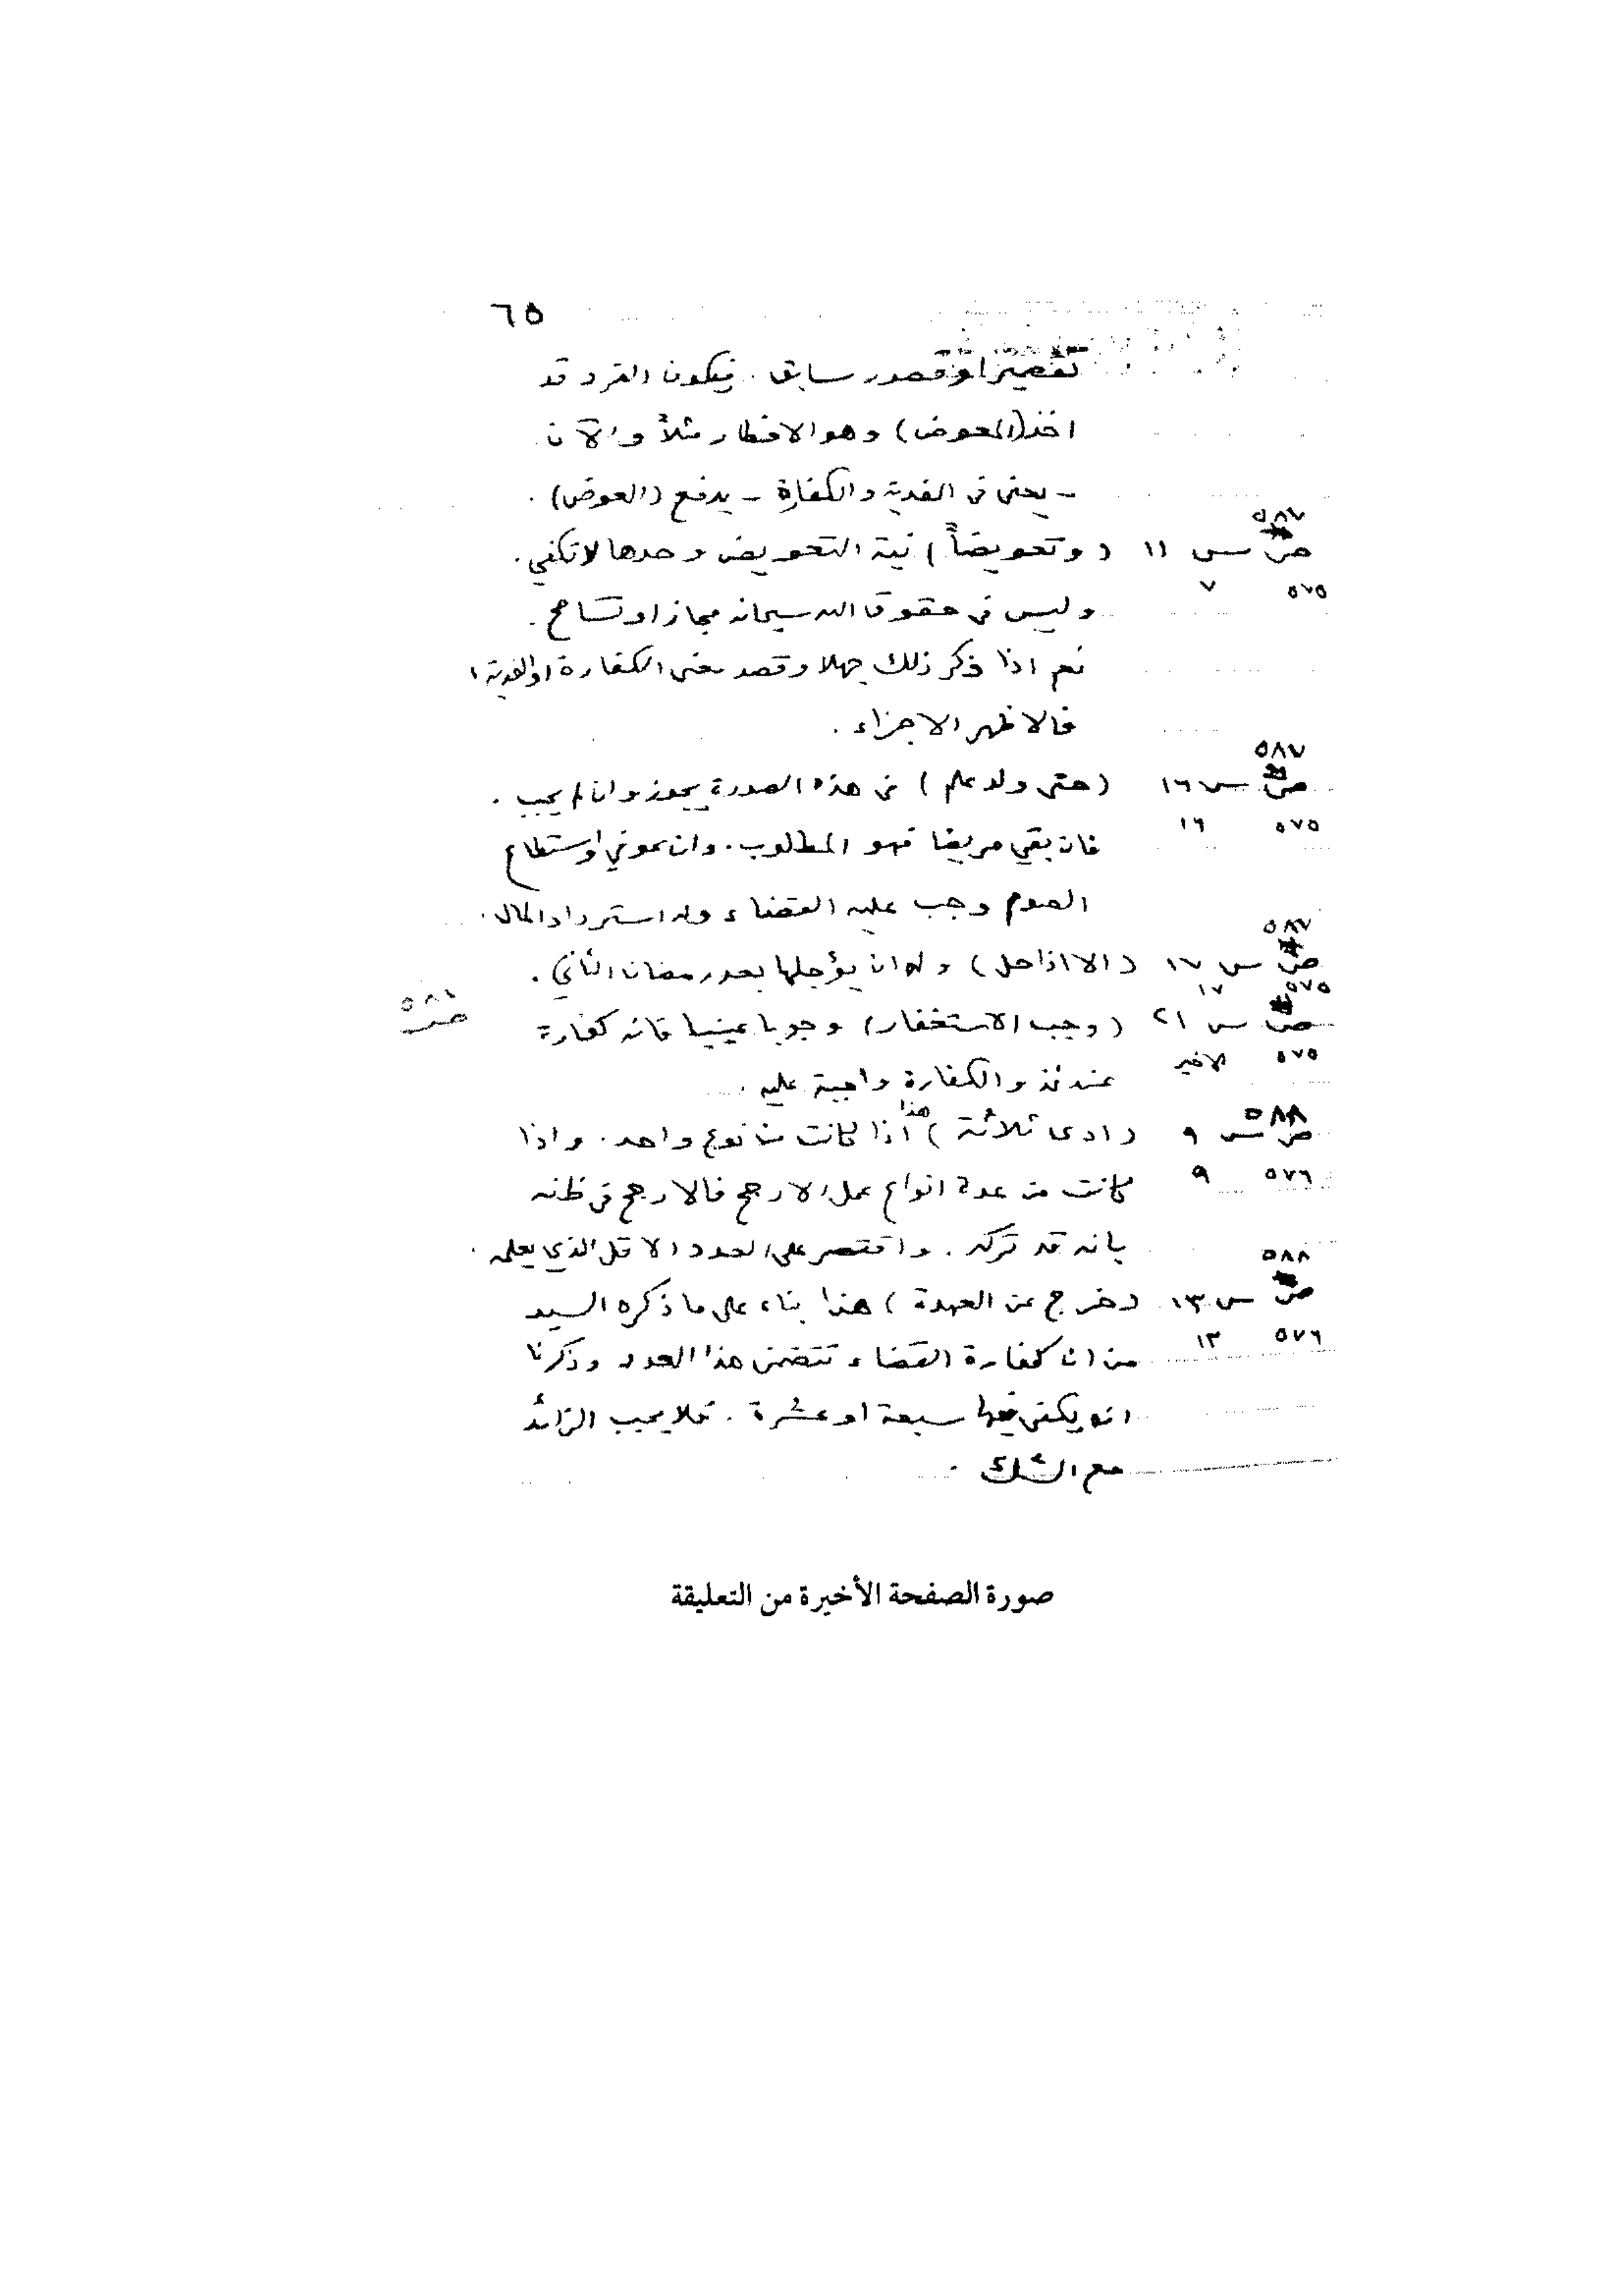 ٦٥
تقصير او قصور سابق. فيكون الفرد قد
اخذ (المعوض) وهو الافطار مثلاً والآن
- يعني في الفدية والكفارة - يدفع (العوض).
٥٨٧
ص س ١١ (وتعويضاً) نية التعويض وحدها لا تكفي.
٥٧٥ ٧
وليس في حقوق الله سبحانه مجاز او تسامح.
نعم اذا ذكر ذلك جهلا وقصد معنى الكفارة او الفدية،
فالاظهر الاجزاء.
٥٨٧
ص س ١٦ (حتى ولو علم) في هذه الصورة يجوز وان لم يجب.
٥٧٥ ١٦
فان بقي مريضا فهو المطلوب. وان عوفي او استطاع
الصوم وجب عليه القضاء وله استرداد المال.
٥٨٧
ص س ١٧ (الا اذا حل) وله ان يؤجلها بعد رمضان الثاني.
٥٧٥ ١٧
ص س ٢١ (وجب الاستغفار) وجوبا عينيا فانه كفارة
٥٧٥ الاخير
عندئذ والكفارة واجبة عليه.
٥٨٨
ص س ٩ (ادى ثلاثة) هذا اذا كانت من نوع واحد. واذا
٥٧٦ ٩
كانت من عدة انواع عمل الارجح فالارجح في ظنه
بانه قد تركه. واقتصر على العدد الاقل الذي يعلمه.
٥٨٨
ص س ١٣ (خرج عن العهدة) هذا بناء على ما ذكره السيد
٥٧٦ ١٣
من ان كفارة القضاء تتضمن هذا العدد وذكرنا
انه يكفي فيها سبعة او عشرة. فلا يجب الزائد
مع الشك.
صورة الصفحة الأخيرة من التعليقة